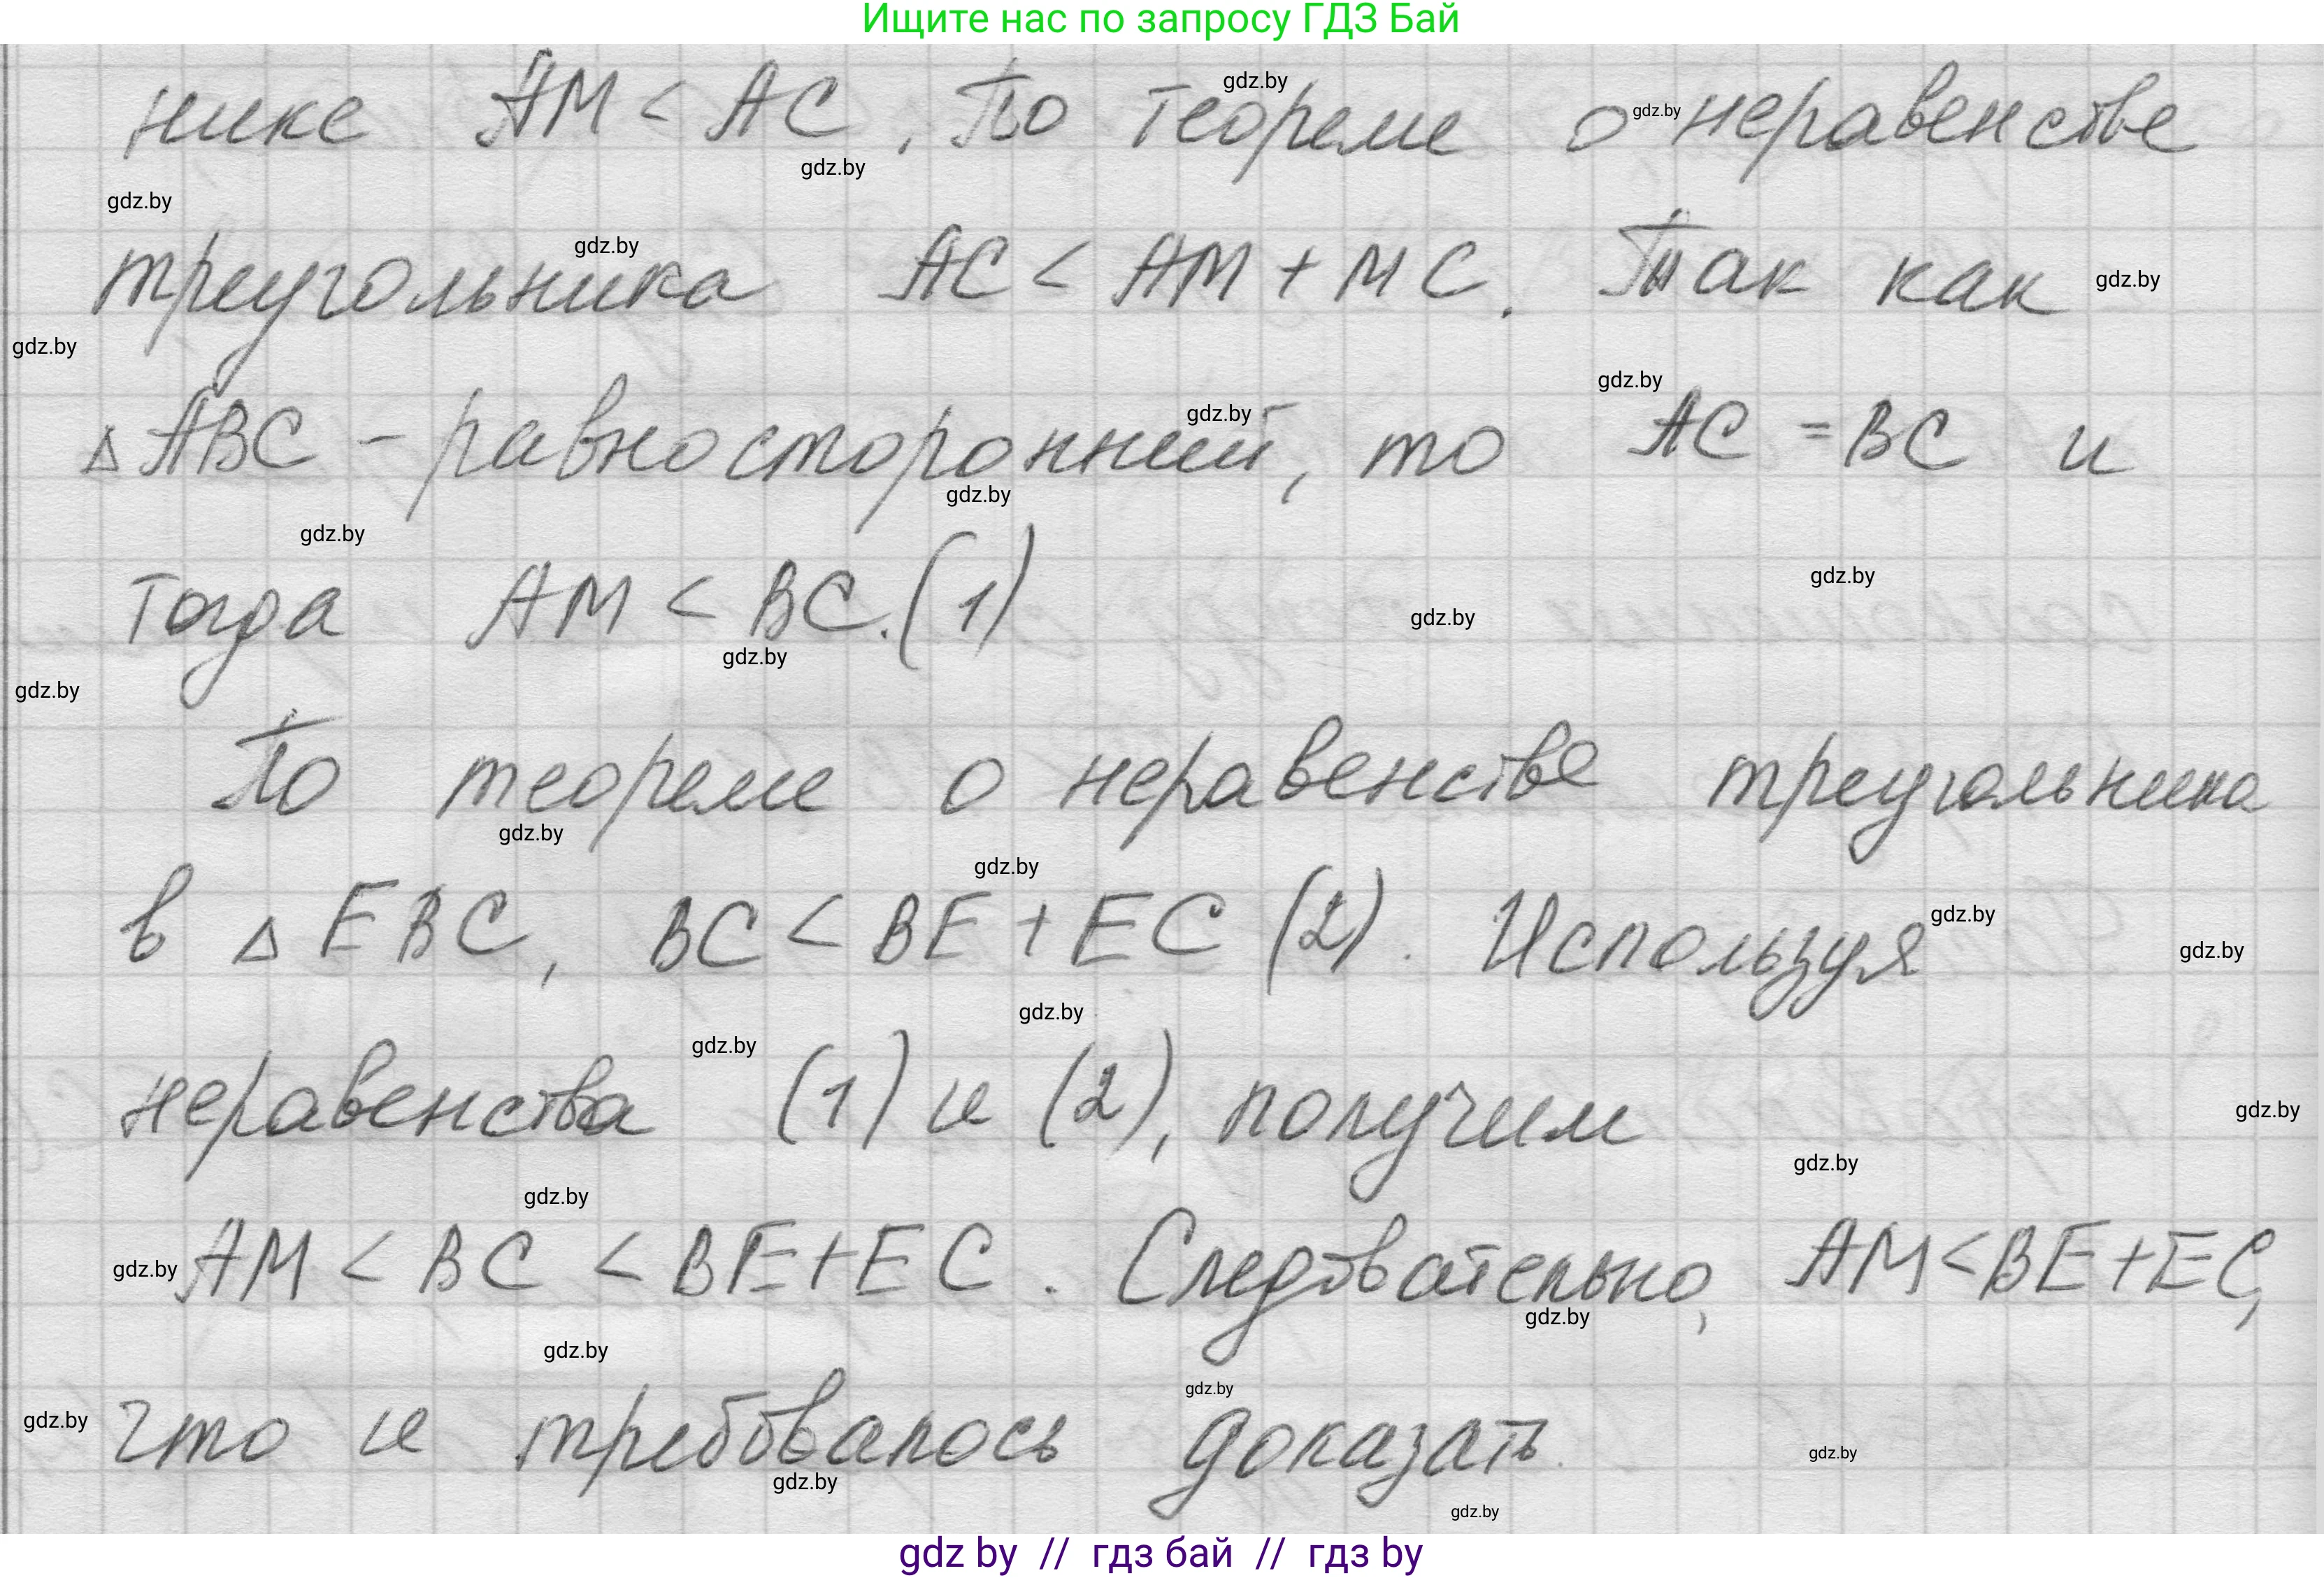 Ищите нас по запросу ГДЗ Бай
нике AM < AC. По теореме о неравенстве
треугольника AC < AM + MC. Так как
△ABC - равносторонний, то AC = BC и
тогда AM < BC. (1)
По теореме о неравенстве треугольника
в △EBC, BC < BE + EC (2). Используя
неравенства (1) и (2), получим
AM < BC < BE + EC. Следовательно, AM < BE + EC,
что и требовалось доказать.
gdz by // гдз бай // гдз by